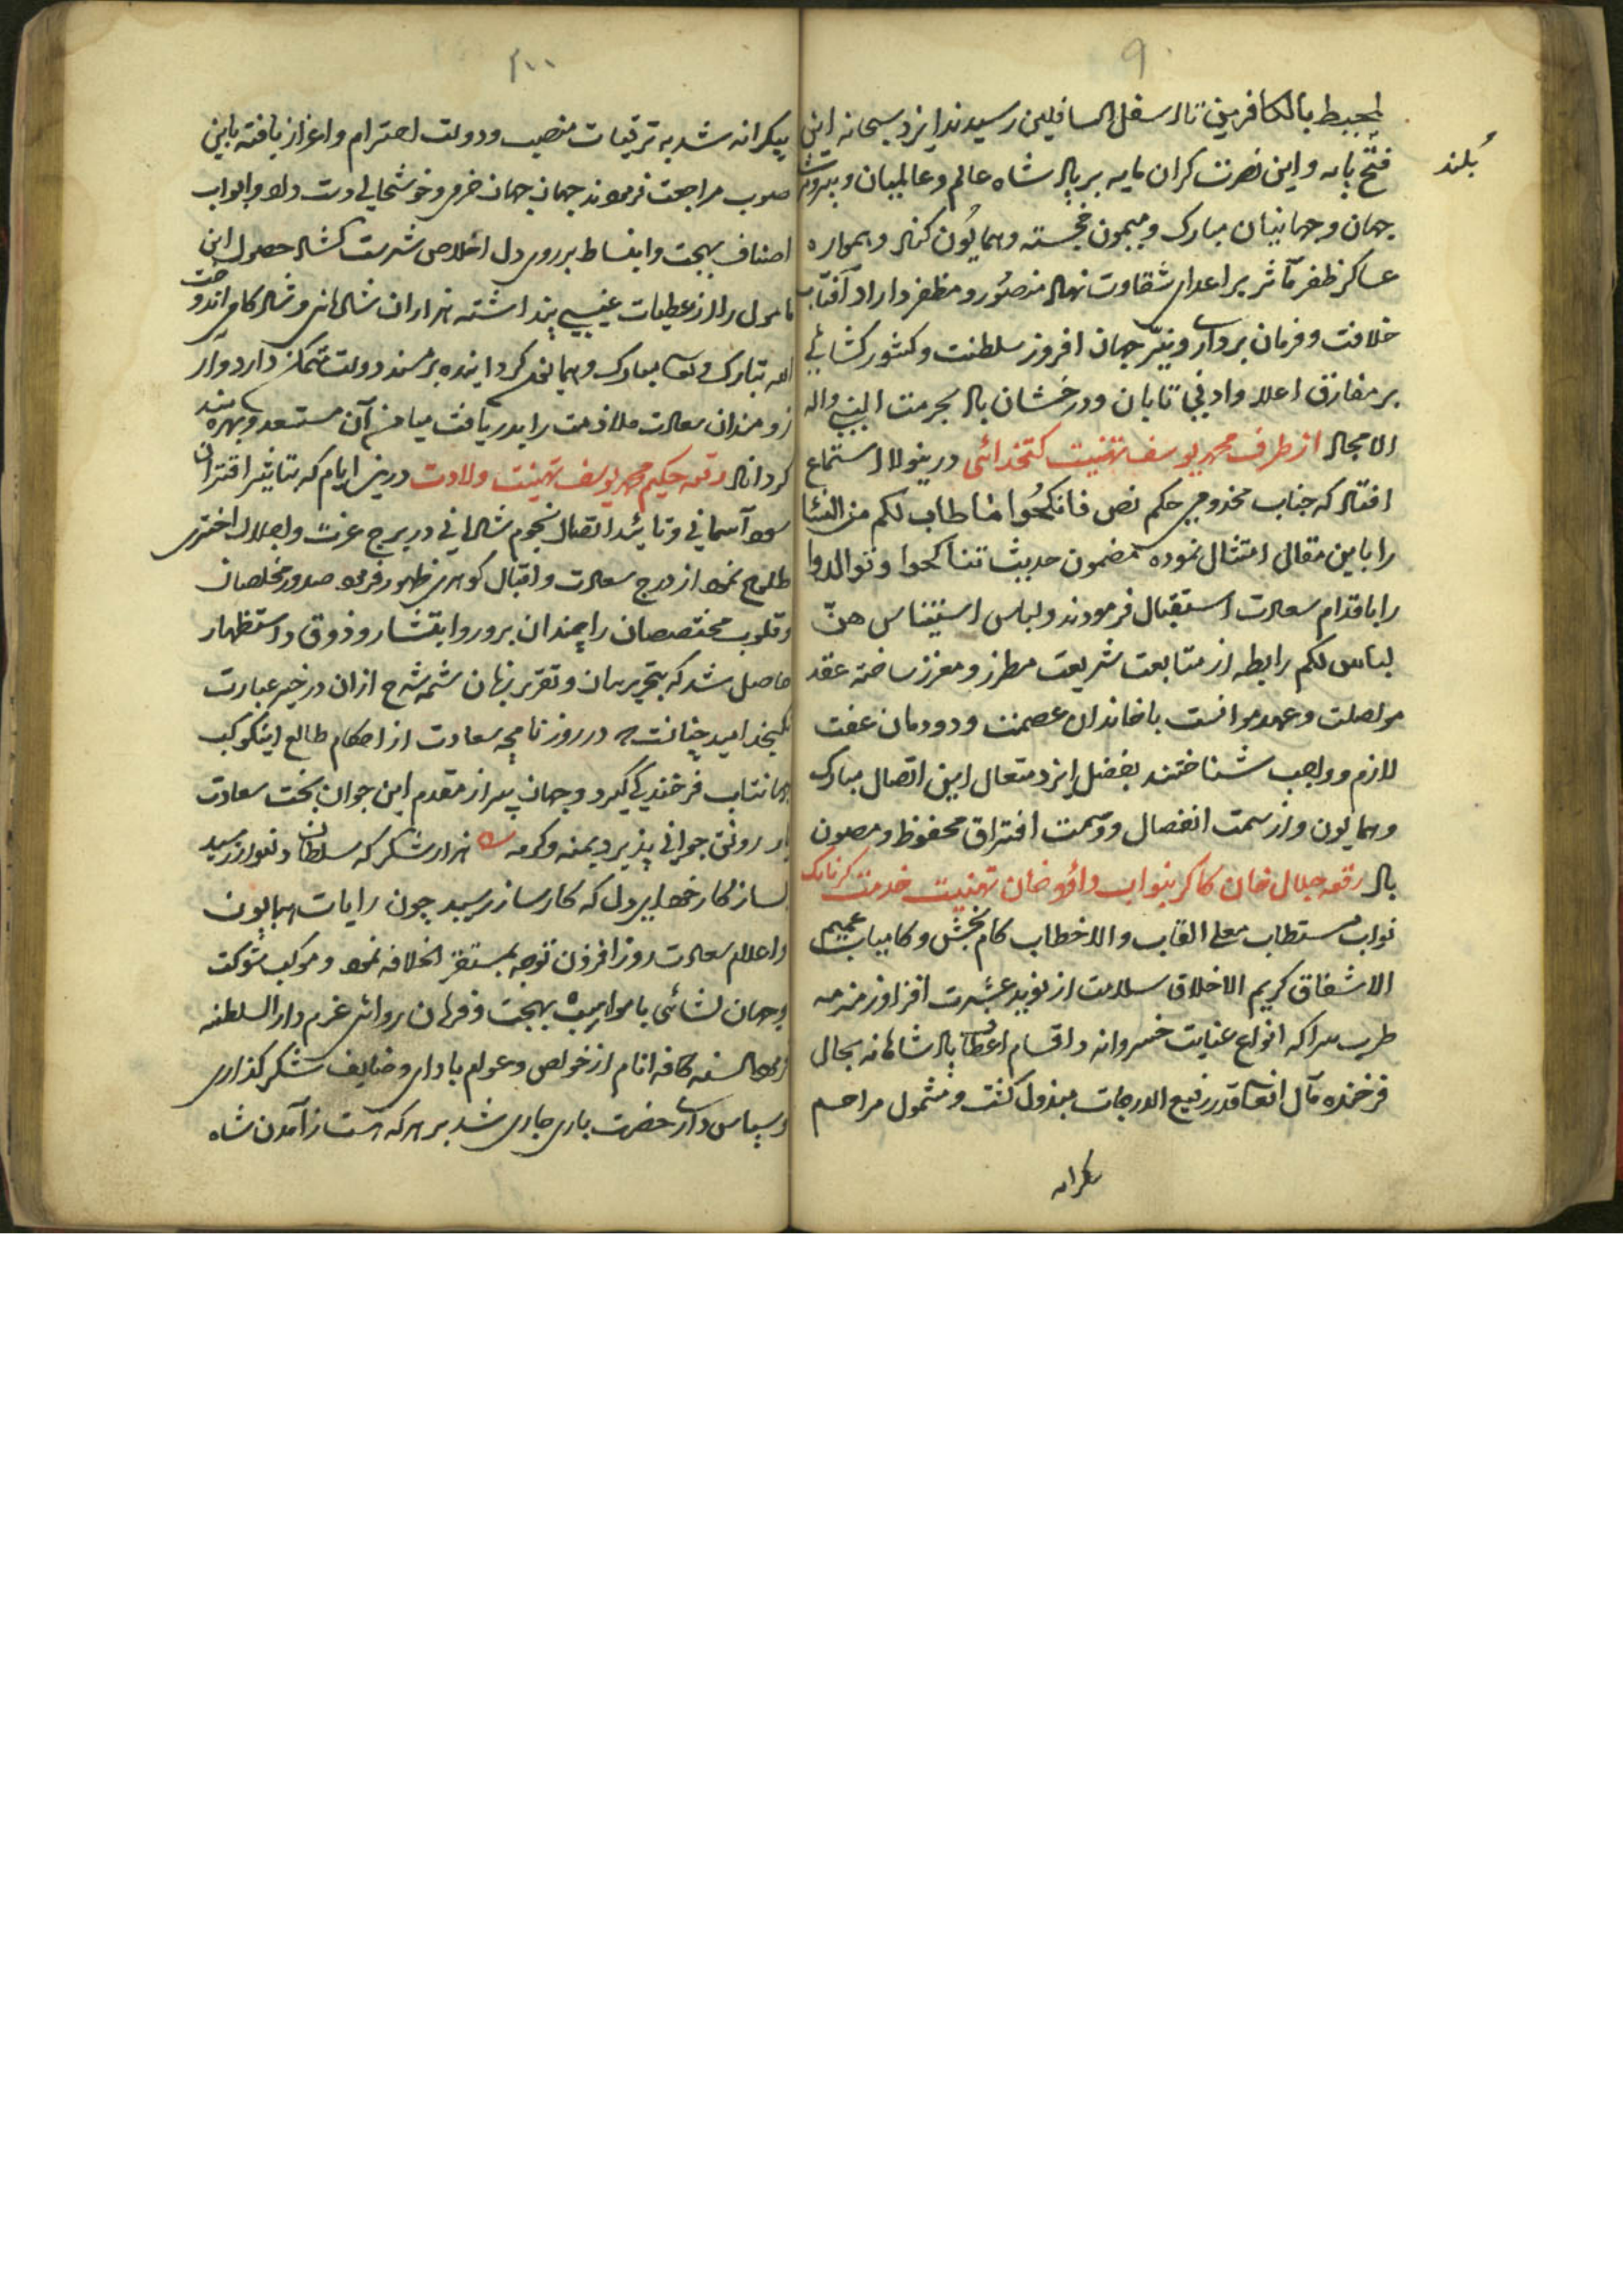 ۹
لمحیط بالکافرین تا اسفل السافلین رسیدند ایزد سبحانه این
بلند
فتح نامه و این نصرت کران مایه بر پادشاه عالم و عالمیان و
جهان و جهانیان مبارک و میمون خجسته و همایون کناد و همواره
عساکر ظفر مآثر بر اعدای شقاوت نهاد منصور و مظفر داراد آفتاب
خلافت و فرمان برداری و نیّر جهان افروز سلطنت و کشور کشائی
بر مفارق اعلا و ادنی تابان و درخشان باد بحرمت النبی و اله
الامجاد از طرف محمد یوسف تهنیت کتخدائی درینولا استماع
افتاد که جناب مخدومی حکم نص فانکحوا ما طاب لکم من النساء
را باین مقال امتثال نموده مضمون حدیث تناکحوا و توالدوا
را باقدام سعادت استقبال فرمودند و لباس استیناس هنّ
لباس لکم رابطه از متابعت شریعت مطرز و معزز ساخته عقد
مواصلت و عهد موانست با خاندان عصمت و دودمان عفت
لازم و واجب شناختند بفضل ایزد متعال این اتصال مبارک
و همایون و از سمت انفصال و وسمت افتراق محفوظ و مصون
باد رقعه جلال خان کاکر بنواب داؤد خان تهنیت خدمت کرناتک
نواب مستطاب معلی القاب والا خطاب کام بخش و کامیاب عمیم
الاشفاق کریم الاخلاق سلامت از نوید عشرت افزا و زمزمه
طرب سرا که انواع عنایت خسروانه و اقسام اعطاف پادشاهانه بحال
فرخنده مآل آنصاقدر رفیع الدرجات مبذول کشت و مشمول مراحم
بیکرانه
۱۰۰
بیکرانه شد به ترقیات منصب و دولت احترام و اعزاز یافته باین
صوب مراجعت فرمودند جهان جهان خرمی و خوشحالی دست داد و ابواب
اصناف بهجت و انبساط بر روی دل اخلاص سرشت کشاد حصول این
مامول را از عطیات غیبی پنداشته هزاران شادمانی و شادکامی اندوخت
الله تبارک و تعالی مبارک و همایون کردانیده بر مسند دولت متمکن دارد و آر
زومندان سعادت ملازمت را بدریافت میامن آن مستعد و بهره مند
کرداناد رقعه حکیم محمد یوسف تهنیت ولادت درین ایام که بتاثیر اقتران
سعد آسمانی و تائید اتصال نجوم شادمانی در برج عزت و اجلال اختری
طلوع نمود از درج سعادت و اقبال کوهری ظهور فرمود صدور مخلصان
و قلوب مختصصان را چندان سرور و ابتشار و ذوق و استظهار
حاصل شد که بتحریر بیان و تقریر زبان شمه شرح ازان در حیز عبارت
نکنجد امید چنانست که در روزنامچه سعادت از احکام طالع این کوکب
جهانتاب فرخندکی کیرد و جهان پیر از مقدم این جوان بخت سعادت
یار رونق جوانی پذیرد بمنه و کرمه ه هزار شکر که سلطان دلنواز رسید
بساز کار خود ای دل که کارساز رسید چون رایات همایون
و اعلام سعادت روز افزون توجه بمستقر الخلافه نمود و موکب شوکت
و جهان کشائی با مواهب بهجت و فرمان روائی عزم دار السلطنه
فرمود السنه کافه انام از خواص و عوام بادای وظایف شکر کذاری
و سپاس داری حضرت باری جاری شد بر هر که هست از آمدن شاه